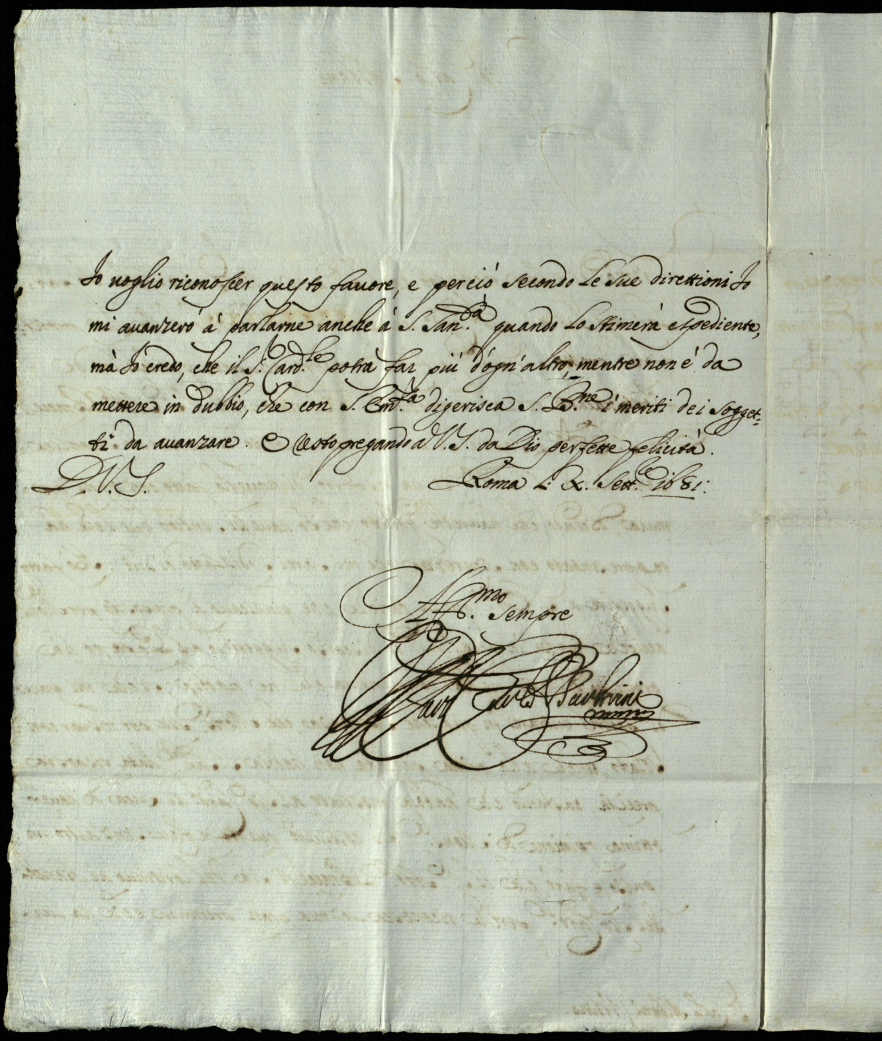 Io uoglio riconoscer questo fauore, e perciò secondo le sue direttioni Io
mi auanzerò à parlarne anche à S. San.tà quando lo stimerà espediente,
mà Io credo, che il S.r Card.le potrà far più d'ogn'altro, mentre non è da
mettere in dubbio, che con S. Em.za digerisca S. B.ne i meriti dei Sogget=
ti da auanzare. E resto pregando a V.S. da Dio perfette felicità.
D. V. S. Roma li X. Sett.e 1681:
Aff.mo sempre
Card. Barberini